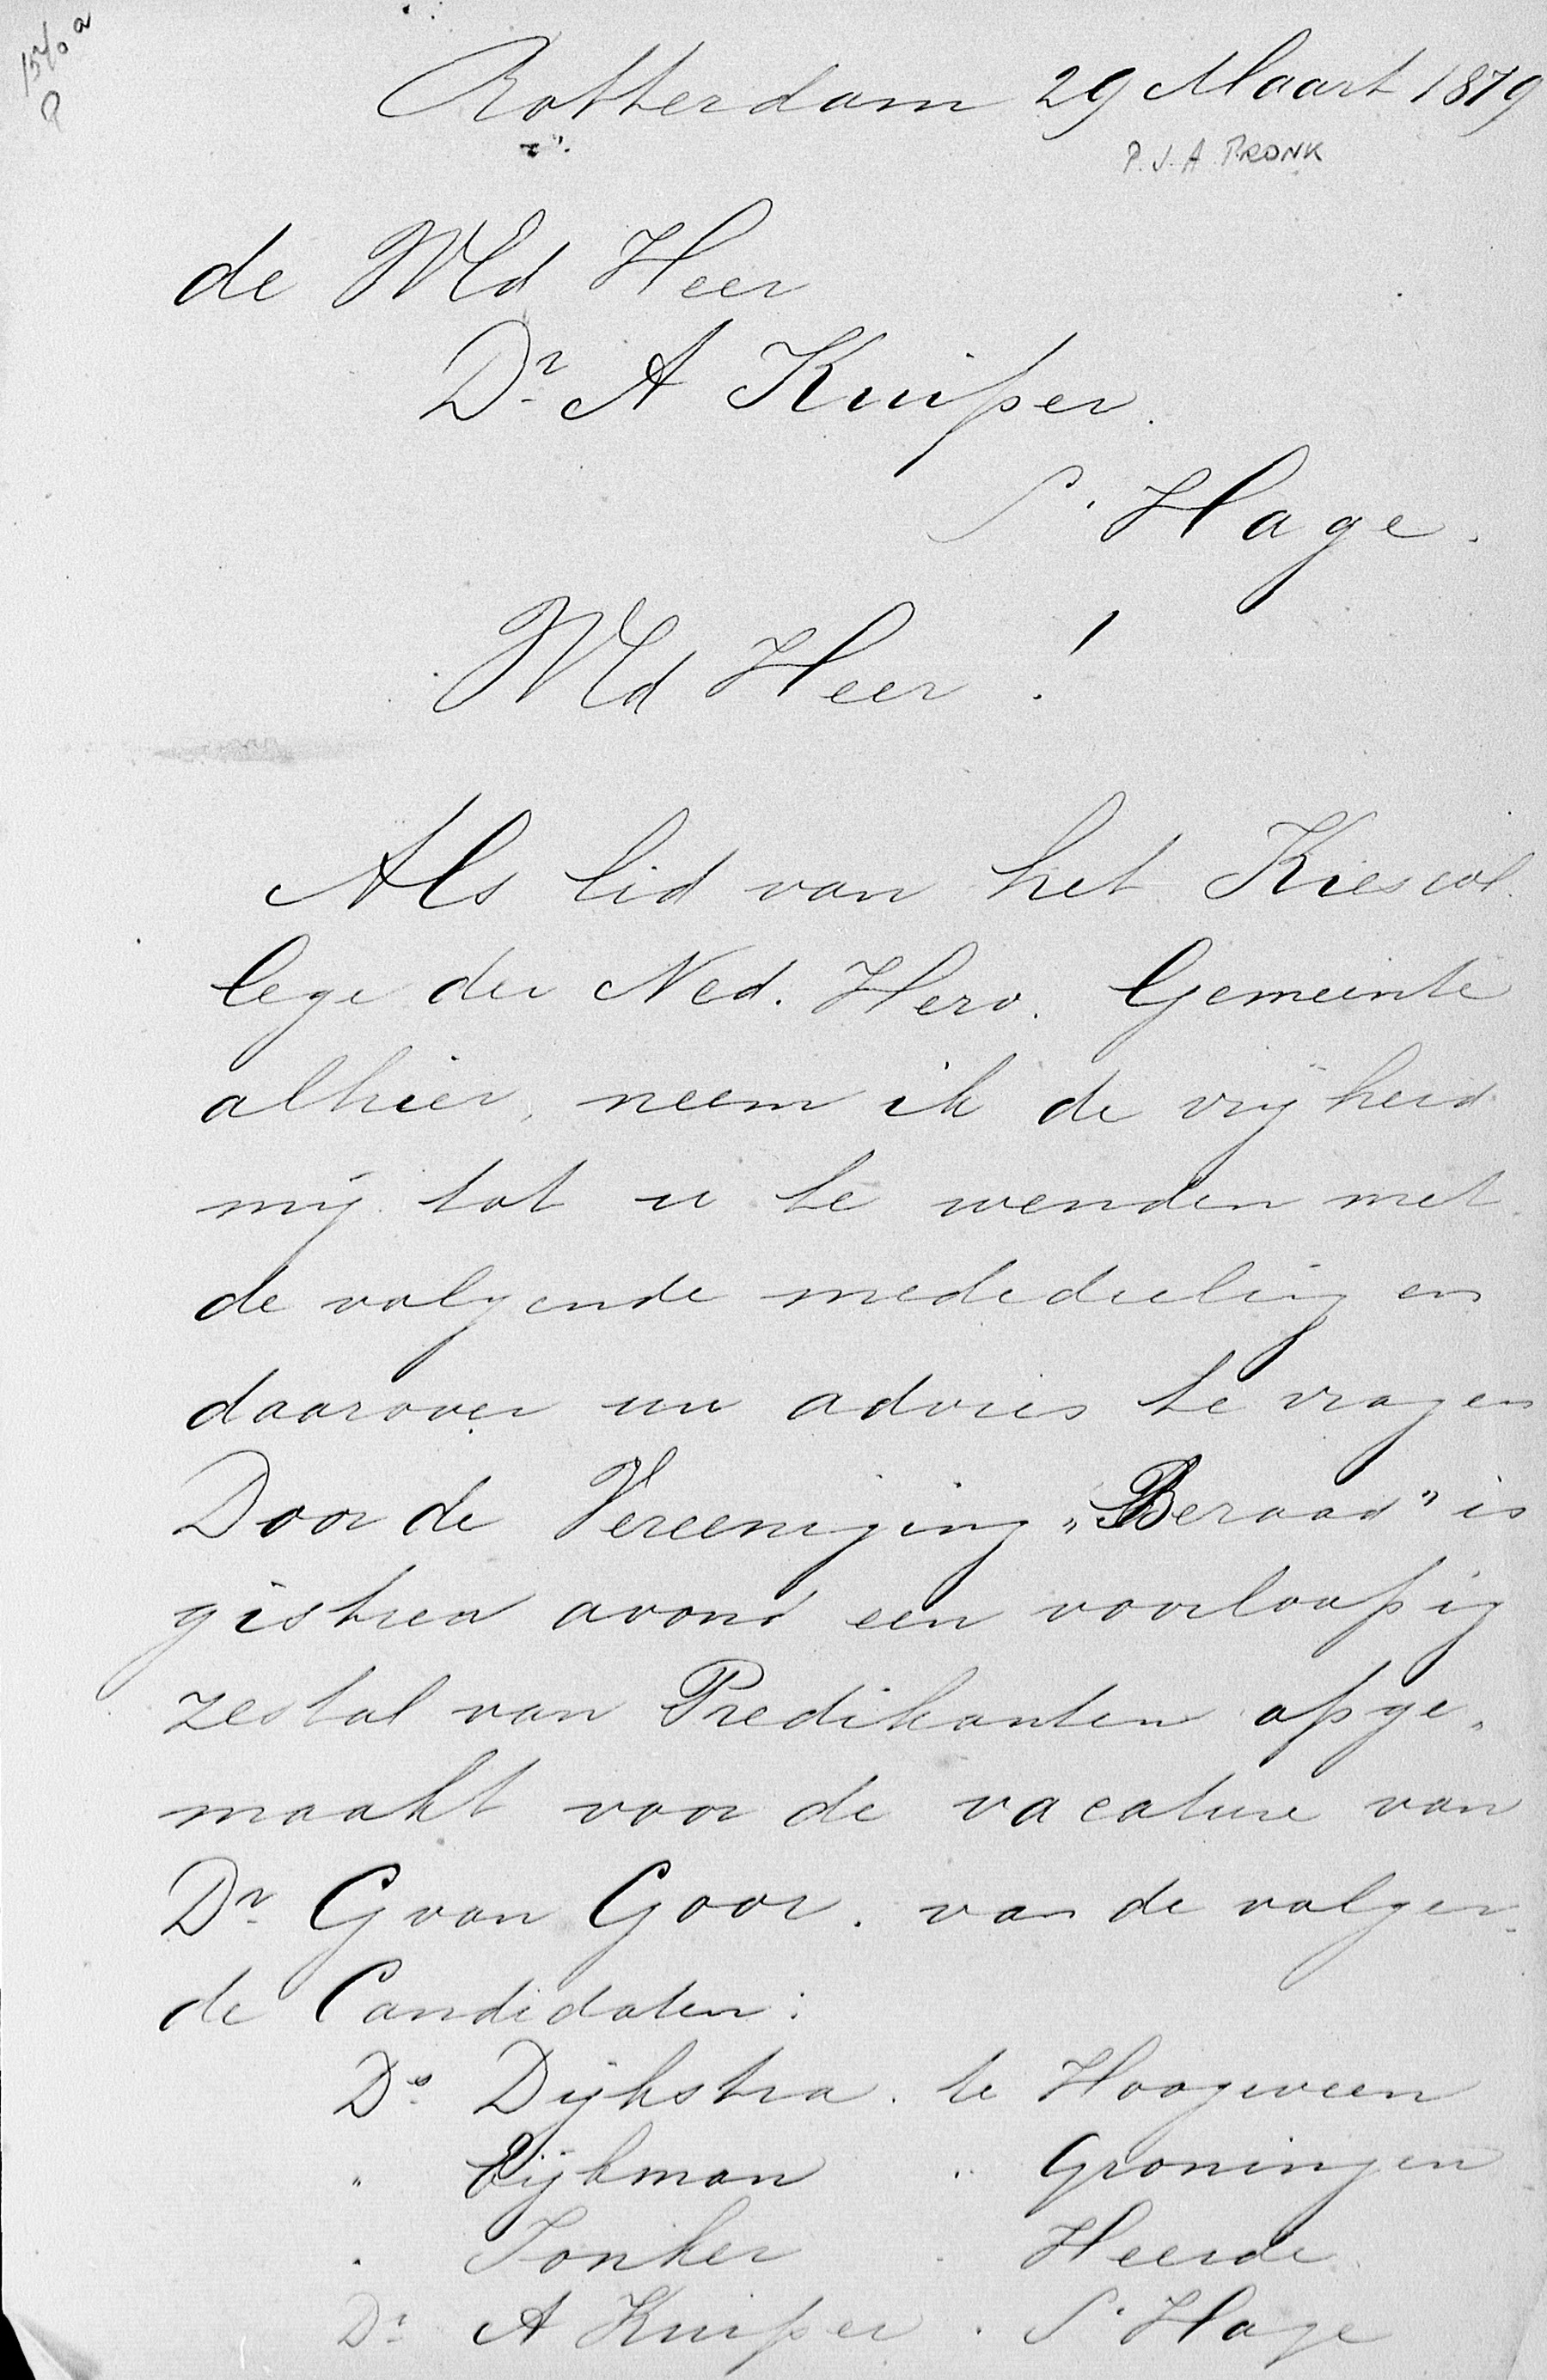 Rotterdam 29 Maart 1879
P. J. A. PRONK
de WEd Heer
Dr A Kuiper.
S' Hage.
WEd Heer !
Als lid van het Kiescol-
lege der Ned. Herv. Gemeente
alhier, neem ik de vrijheid
mij tot u te wenden met
de volgende mededeeling en
daarover uw advies te vragen
Door de Vereeniging „Beraad" is
gistren avond een voorloopig
zestal van Predikanten opge-
maakt voor de vacature van
Dr G van Goor. van de volgen-
de Candidaten:
Ds Dijkstra. te Hoogeveen
" Eijkman " Groningen
" Jonker " Heerde
Dr A Kuiper. S' Hage